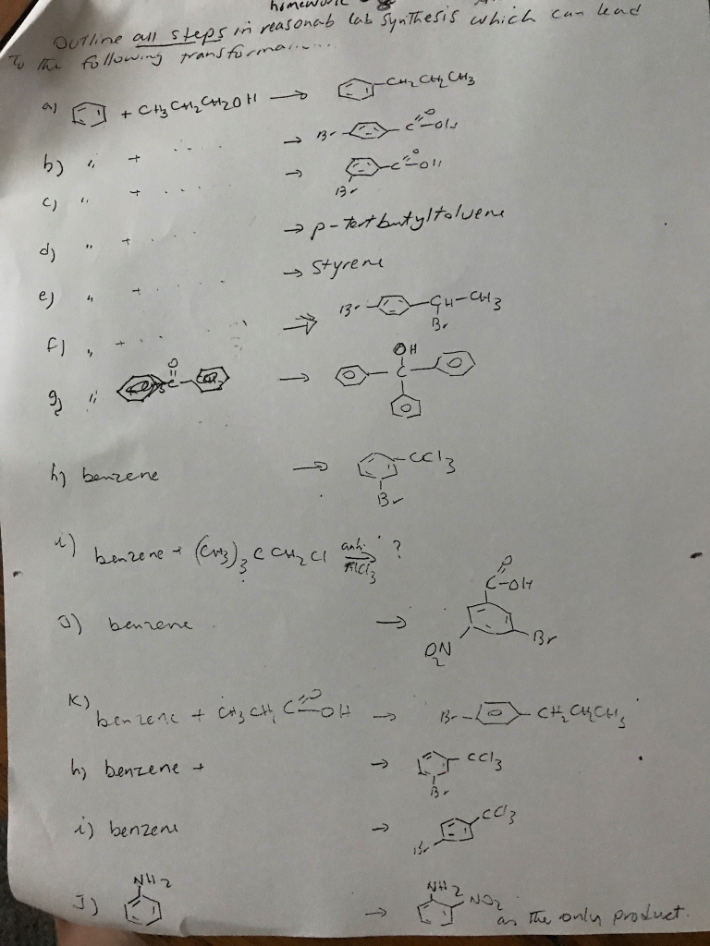 homework
Outline all steps in reasonab lab synthesis which can lead
To the following transforma.....
a) + CH3CH2CH2OH → -CH2CH2CH3
b) " + ..... → Br- -C=O-OH
c) " + ..... → Br -C=O-OH
d) " + ..... → p-tertbutyltoluene
e) " + ..... → Styrene
f) " + ..... ⇒ Br- -CH-CH3 Br
g) " O C → OH C
h) benzene → -CCl3 Br
i) benzene + (CH3)3CCH2Cl anh. AlCl3 → ?
J) benzene → O C-OH O2N Br
K) benzene + CH3CH2C=O-OH → Br- -CH2CH2CH3
h) benzene + → CCl3 Br
i) benzene → CCl3 Br
J) NH2 → NH2 NO2 as the only product.